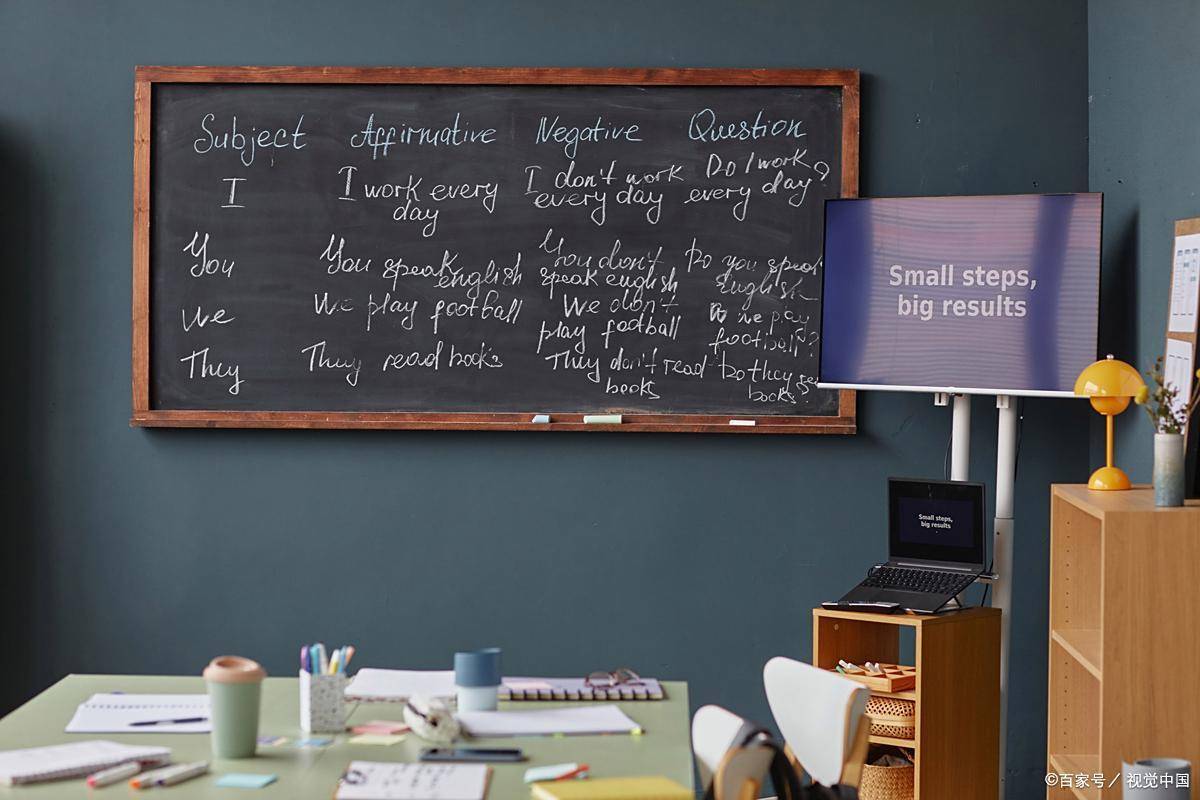 Subject Affirmative Negative Question
I I work every day I don't work every day Do I work every day?
You You speak english You don't speak english Do you speak English
We We play football We don't play football Do we play football?
They They read books They don't read books Do they books?
Small steps,
big results
Small steps,
big results
©百家号／视觉中国